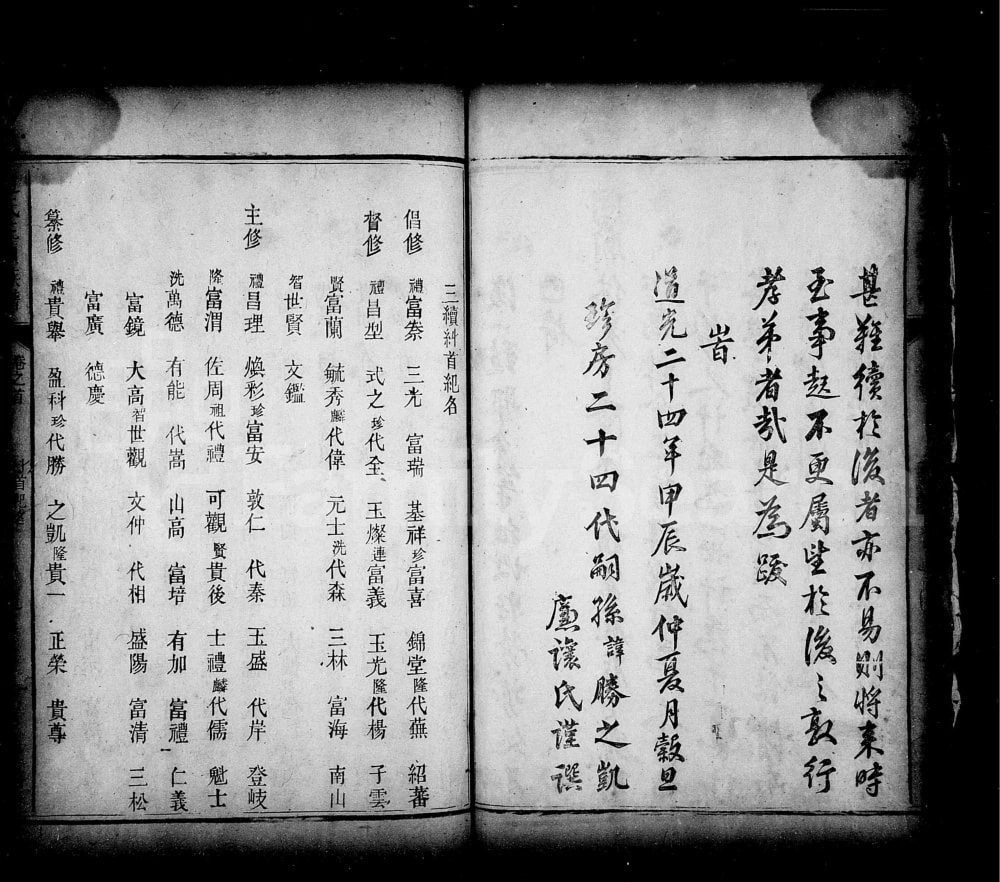 甚難續於後者亦不易則將来時
至事起不更屬望於後之敦行
孝弟者哉是為跋
峕
道光二十四年甲辰歲仲夏月穀旦
珍房二十四代嗣孫諱勝之凱
廉讓氏謹譔
三續糾首紀名
倡修 禮富桊 三光 富瑞 基祥 珍富喜 錦堂 隆代蕪 紹蕃
督修 禮昌型 式之 珍代全 玉燦 連富義 玉光 隆代楊 子雲
賢富蘭 毓秀 麟代偉 元士 洗代森 三林 富海 南山
智世賢 文鑑
主修 禮昌理 煥彩 珍富安 敦仁 代秦 玉盛 代岸 登岐
隆富渭 佐周 祖代禮 可觀 賢貴後 士禮 麟代儒 魁士
洗萬德 有能 代嵩 山高 富培 有加 富禮 仁義
富鏡 大高 智世觀 文仲 代相 盛陽 富清 三松
富廣 德慶
纂修 禮貴舉 盈科 珍代勝 之凱 隆貴一 正榮 貴尊
卷之首